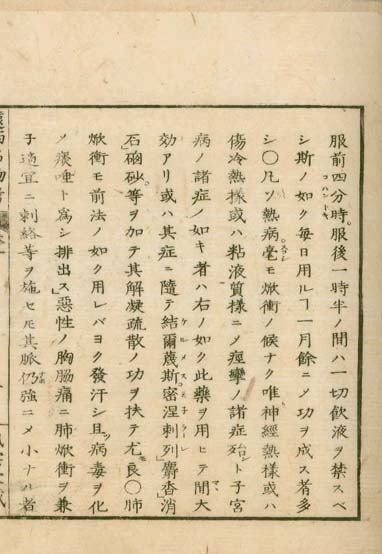 服前四分時。服後一時半ノ間ハ一切飲液ヲ禁スベ
コハントキ
シ斯ノ如ク毎日用ルヿ一月餘ニメ功ヲ成ス者多
シ〇凡ソ熱病毫モ焮衝ノ候ナク唯神經熱様或ハ
傷冷熱様或ハ粘液質様ニメ痙攣ノ諸症殆ト子宮
病ノ諸症ノ如キ者ハ右ノ如ク此藥ヲ用ヒテ間大
効アリ或ハ其症ニ隨テ結爾蔑斯密涅剌列麝香消
石硇砂等ヲ加テ其解凝疏散ノ功ヲ扶テ尤良〇肺
焮衝モ前法ノ如ク用レバヨク發汗シ且ツ病毒ヲ化
ノ痰唾ト爲シ排出ス惡性ノ胸腸痛ニ肺焮衝ヲ兼
子適宜ニ刺絡等ヲ施セ𪜈其脈仍強ニメ小ナハ者